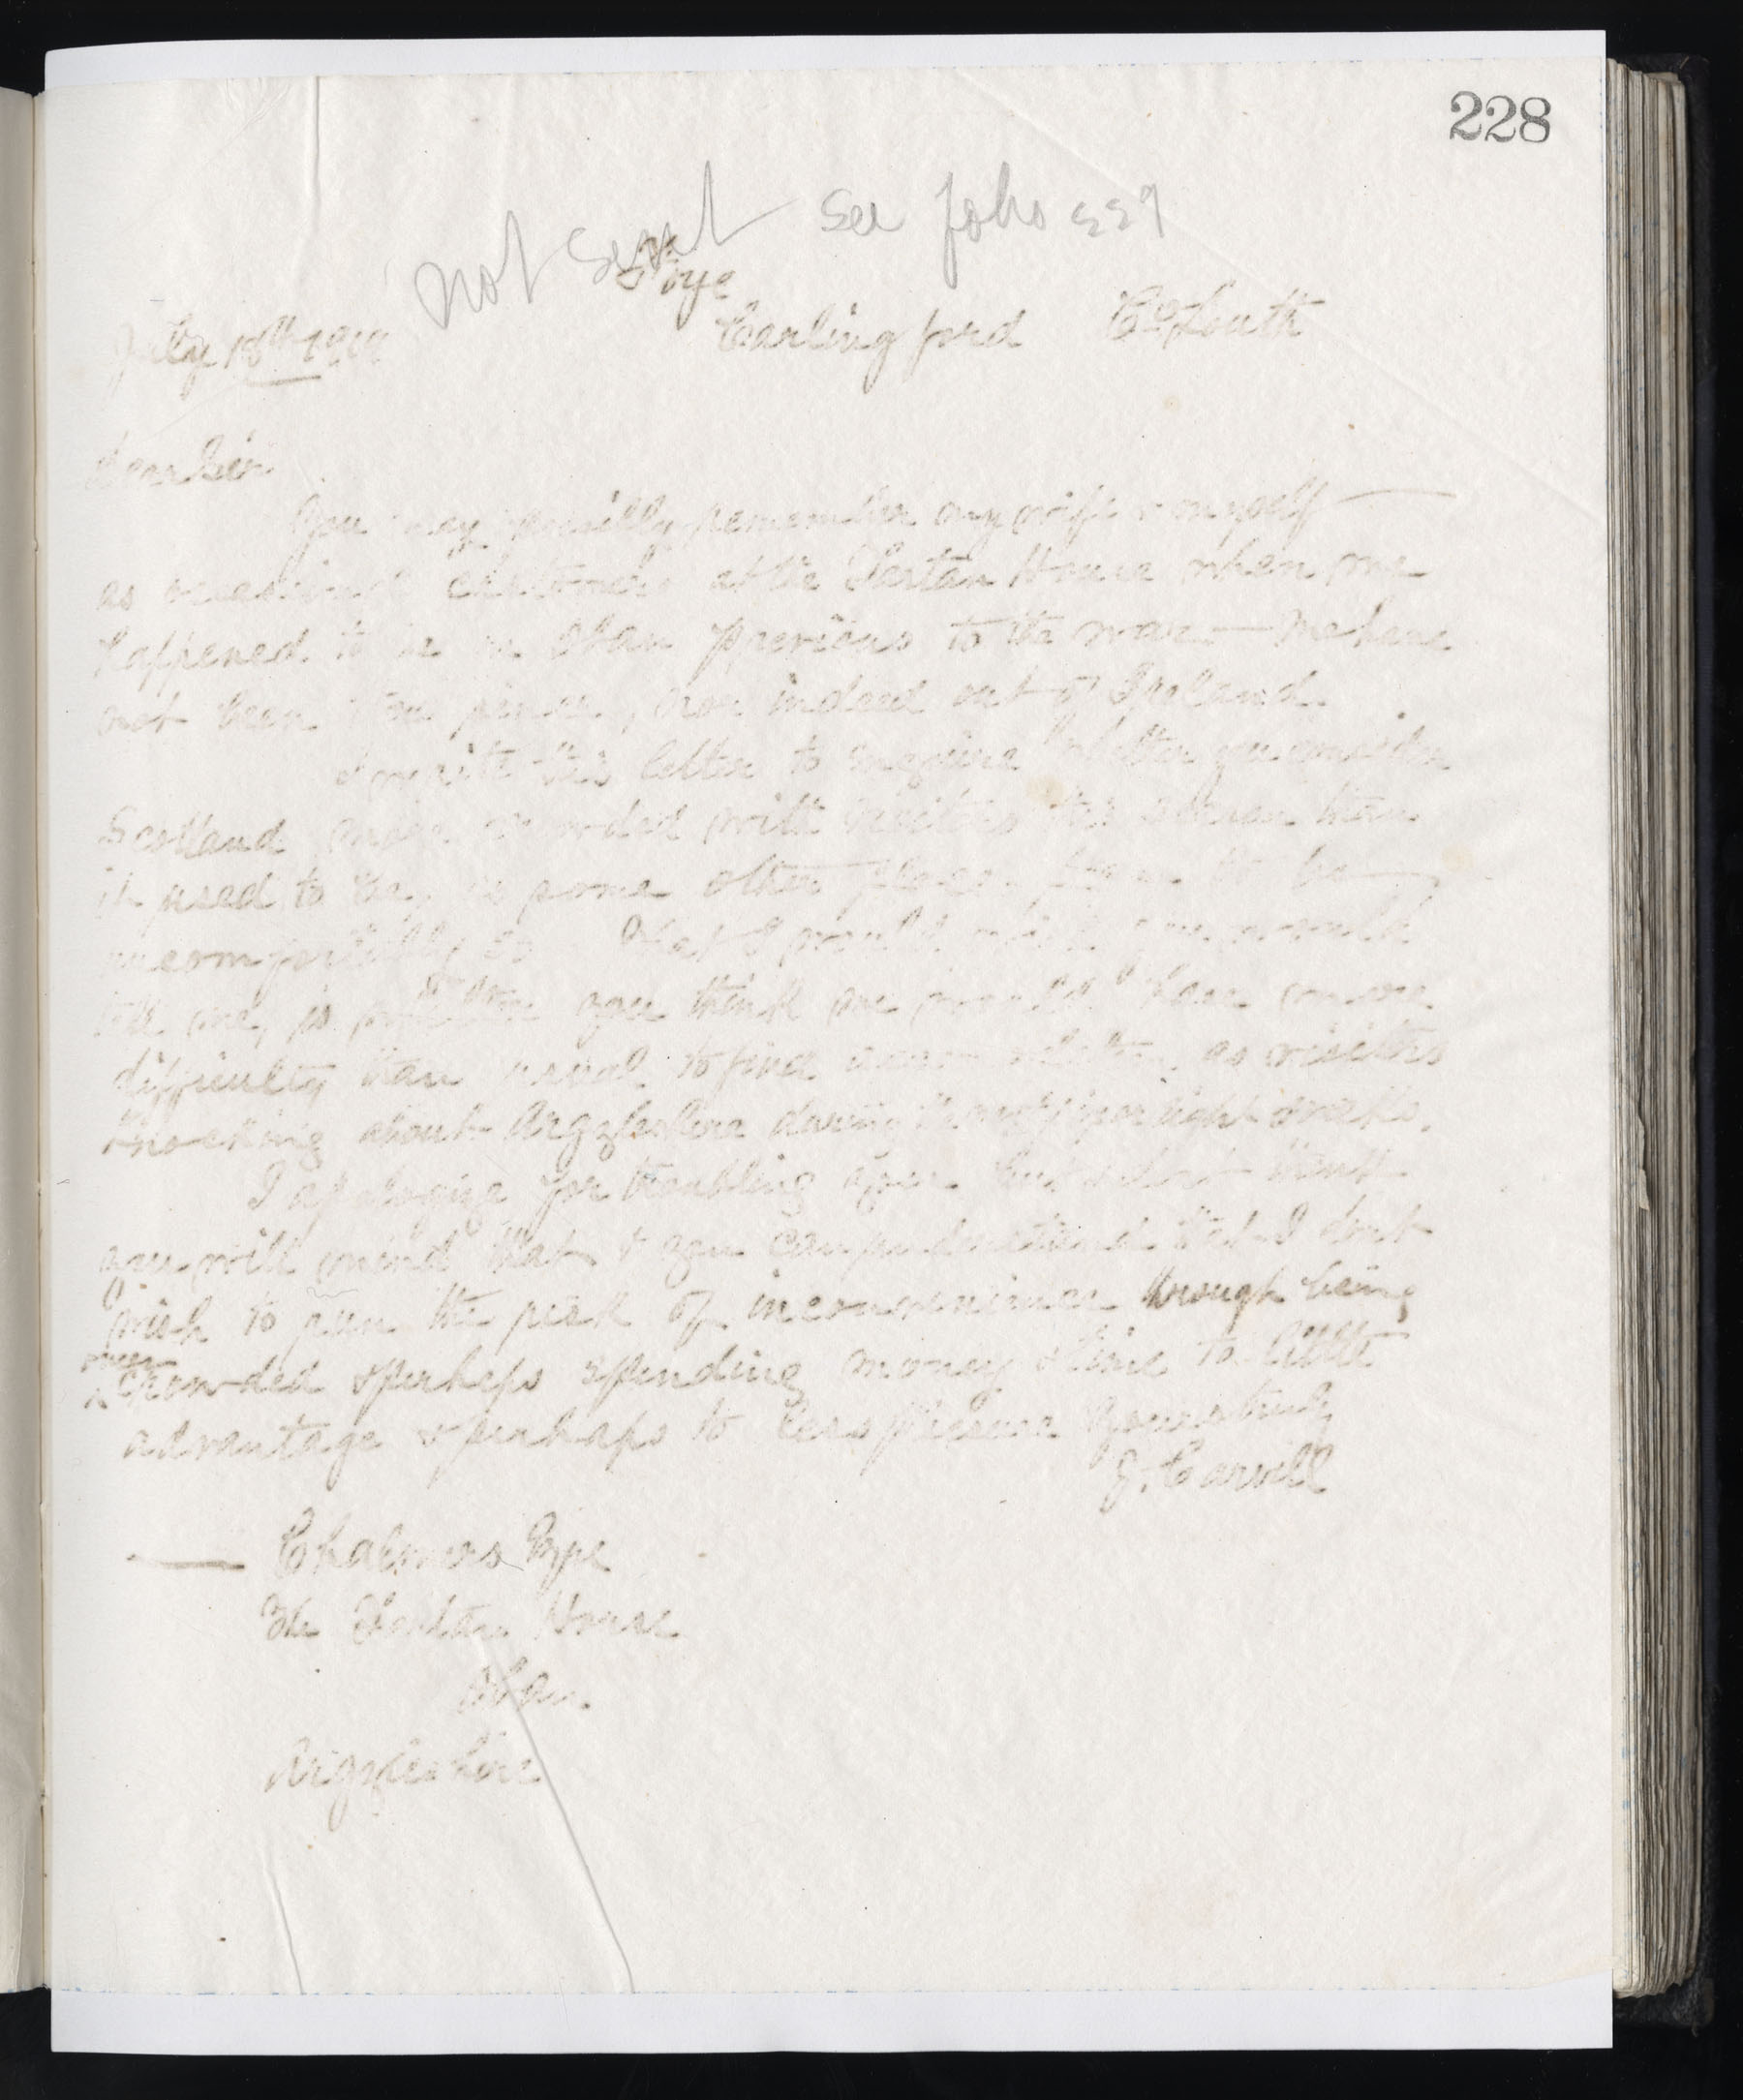 228
Not Sent See folio 229
Foye
Carlingford Co Louth
July 18th
Dear Sir
You may possibly remember my wife & myself
as occasional customers at the Tartan House when we
happened to be in Oban previous to the war — We have
not been there since, nor indeed out of Ireland.
I write this letter to inquire whether you consider
Scotland more crowded with visitors this season than
it used to be, as some other places
uncomfortably so. What I would you would
tell me, is whether you think we would have more
difficulty than usual to find as visitors
knocking about Argyleshire during the next or eight weeks.
I apologize for troubling you but I don't think
you will mind that & you can understand that I don't
wish to run the risk of inconvenience through being
over
crowded & perhaps spending money & time to little
advantage & perhaps to less pleasure Yours truly
J. Carvill
— Chalmers Pype
The Tartan House
Oban.
Argyleshire